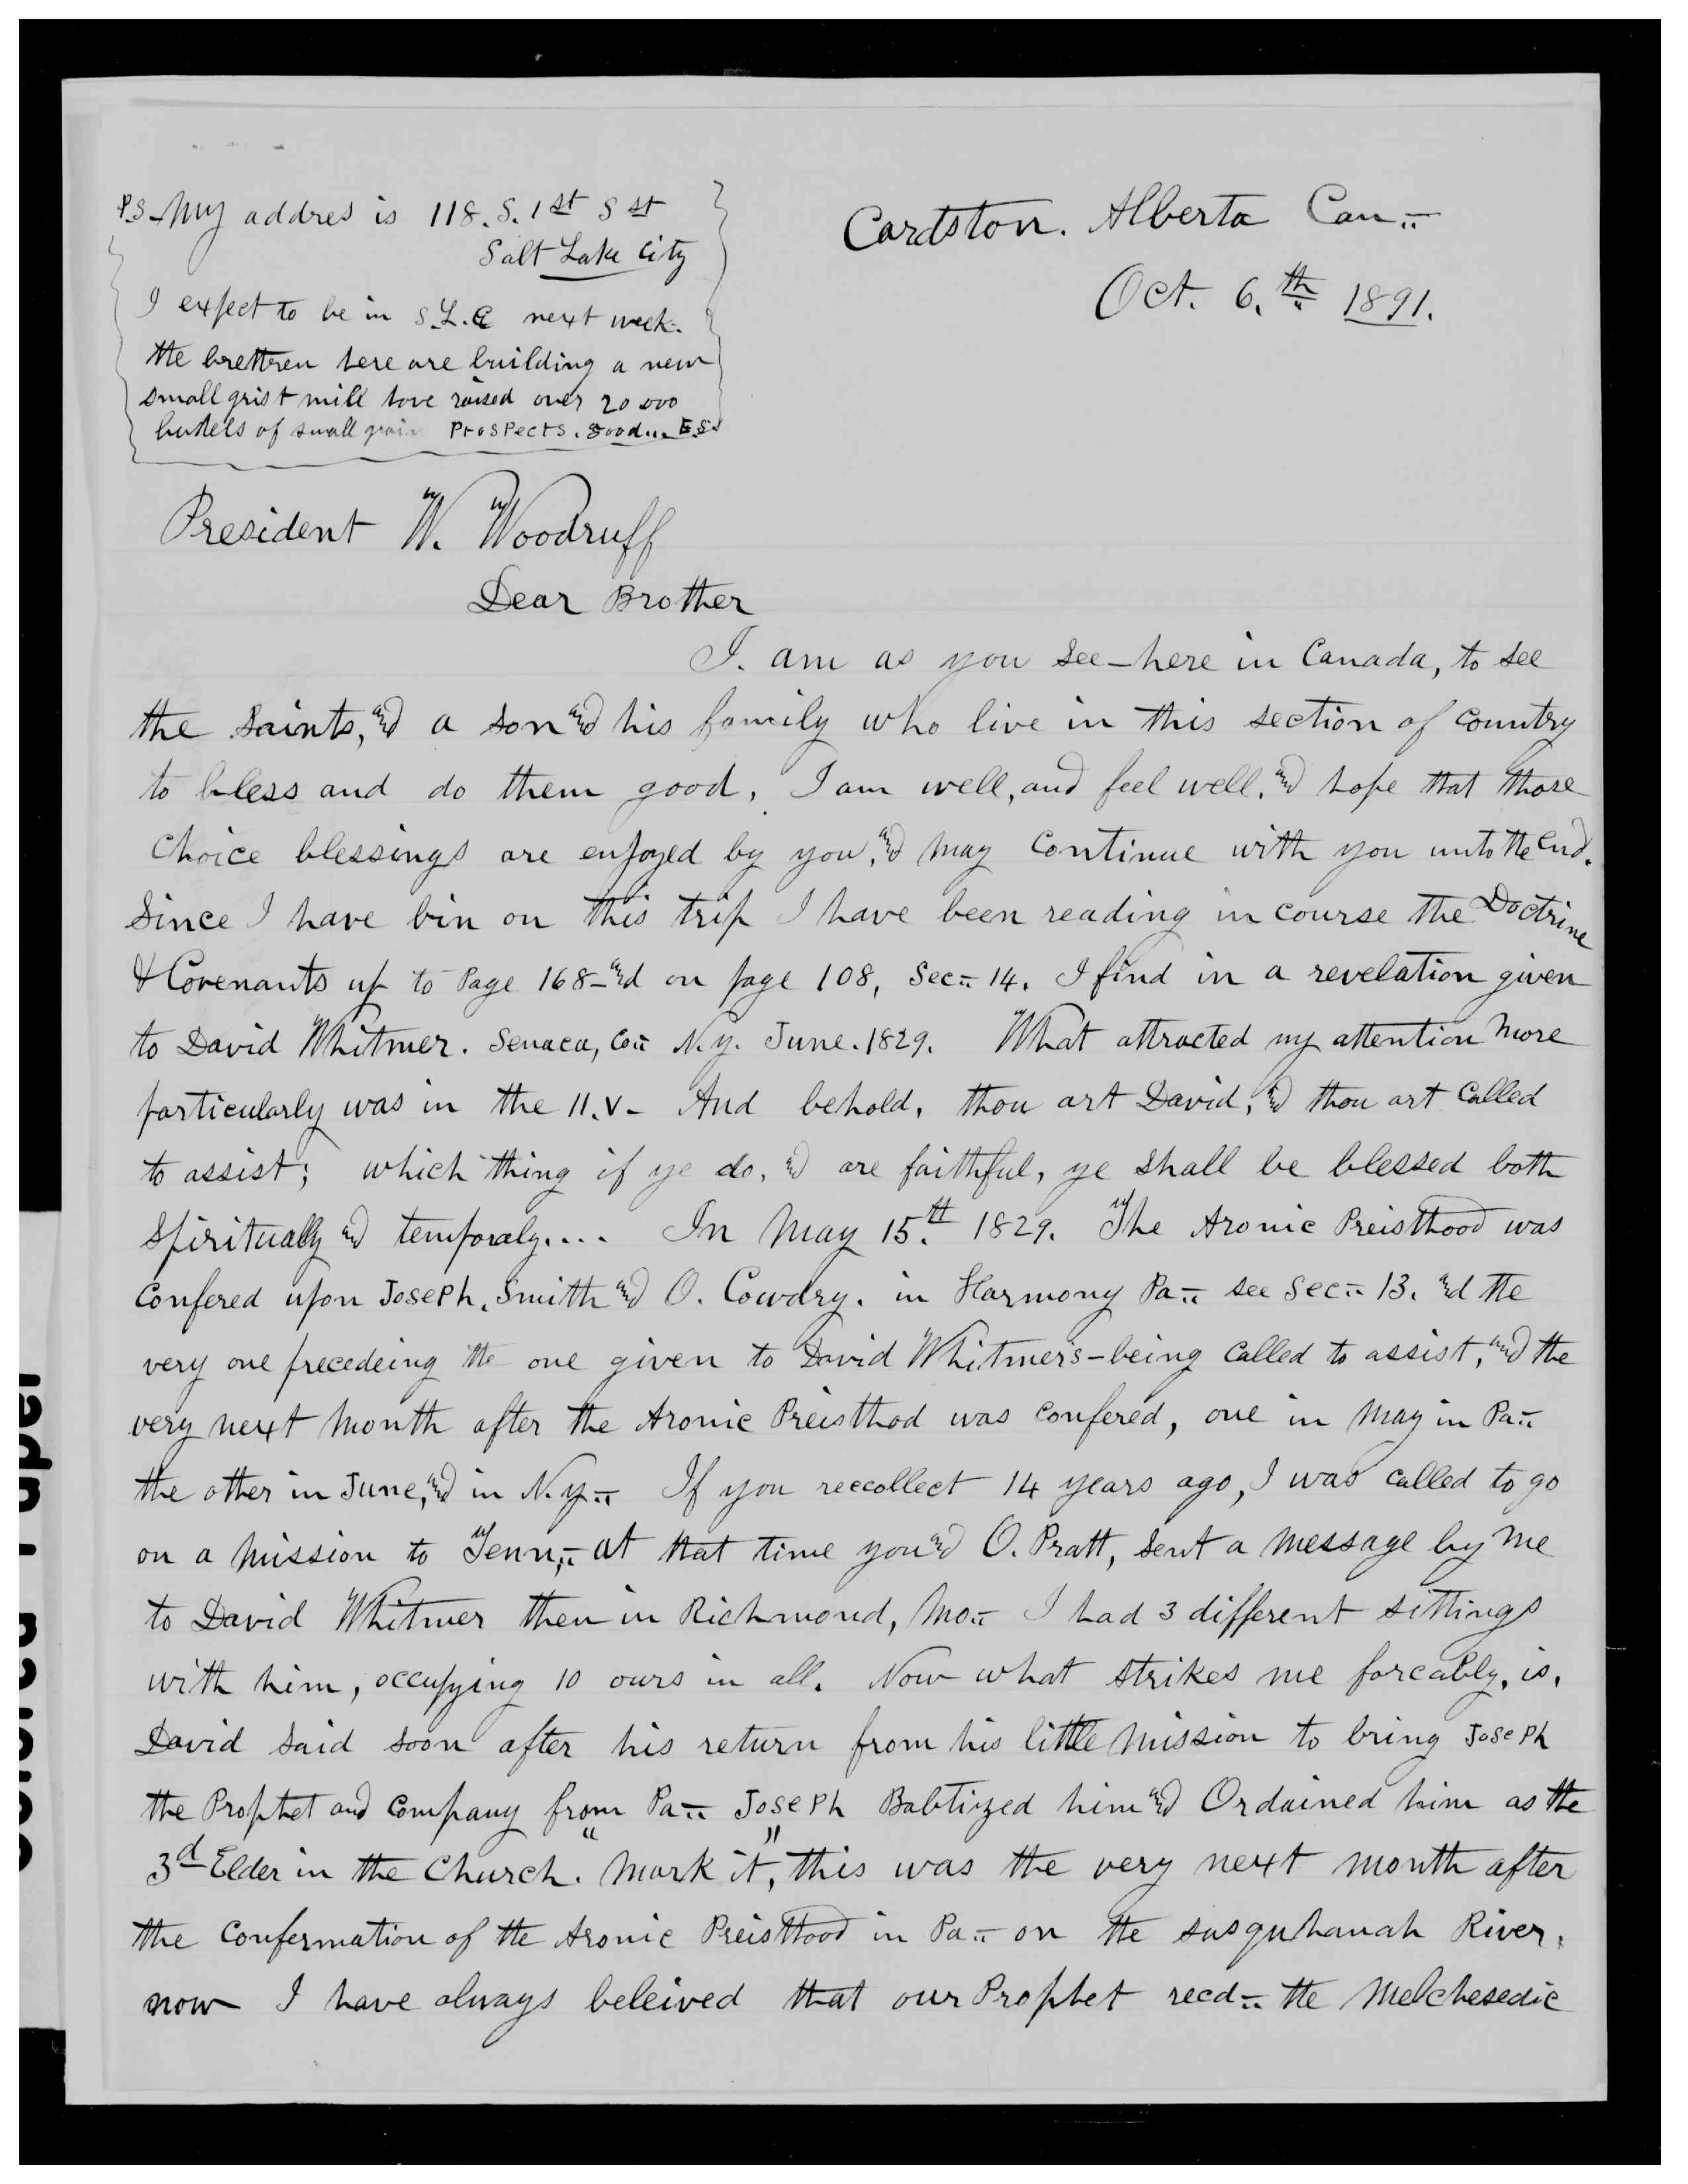 P.S - My addres is 118. S. 1st S st
Salt Lake City
I expect to be in S.L.C next week.
the brethren here are building a new
small grist mill have raised over 20 000
bushels of small grain Prospects. good... E.S.
Cardston. Alberta Can..
Oct. 6.th 1891.
President W. Woodruff
Dear Brother
I. am as you see - here in Canada, to see
the Saints, and a son and his family who live in this section of country
to bless and do them good, I am well, and feel well, and hope that those
choice blessings are enjoyed by you, and may continue with you unto the End.
Since I have bin on this trip I have been reading in course the Doctrine
& Covenants up to Page 168 - and on page 108, Sec.. 14. I find in a revelation given
to David Whitmer. Senaca, Co.. N.y. June. 1829. What attracted my attention more
particularly was in the 11.v - And behold, thou art David, and thou art Called
to assist; which thing if ye do, and are faithful, ye shall be blessed both
Spiritually and temporaly.... In May 15.th 1829. The Aronic Preisthood was
Confered upon Joseph. Smith and O. Cowdry. in Harmony Pa.. see Sec.. 13. and the
very one precedeing the one given to David Whitmer's - being Called to assist, and the
very next month after the Aronic Preisthod was Confered, one in May in Pa..
the other in June, and in N.y.. If you reccollect 14 years ago, I was called to go
on a mission to Tenn,.. at that time you and O. Pratt, sent a message by me
to David Whitmer then in Richmond, Mo.. I had 3 different sittings
with him, occupying 10 ours in all. Now what strikes me forcably, is,
David said soon after his return from his little mission to bring Joseph
the Prophet and Company from Pa.. Joseph Babtized him and Ordained him as the
3d Elder in the Church. "Mark it," this was the very next month after
the Confermation of the Aronic Preisthood in Pa.. on the susquhanah River.
now I have always beleived that our Prophet recd.. the Melchesedic